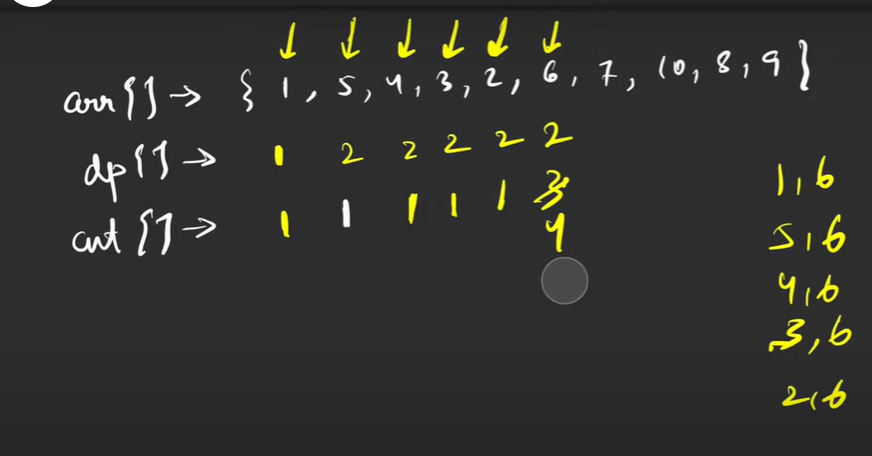 arr[] → { 1, 5, 4, 3, 2, 6, 7, 10, 8, 9 }
dp[] → 1 2 2 2 2 2
cnt[] → 1 1 1 1 1
4
1, 6
5, 6
4, 6
3, 6
2, 6